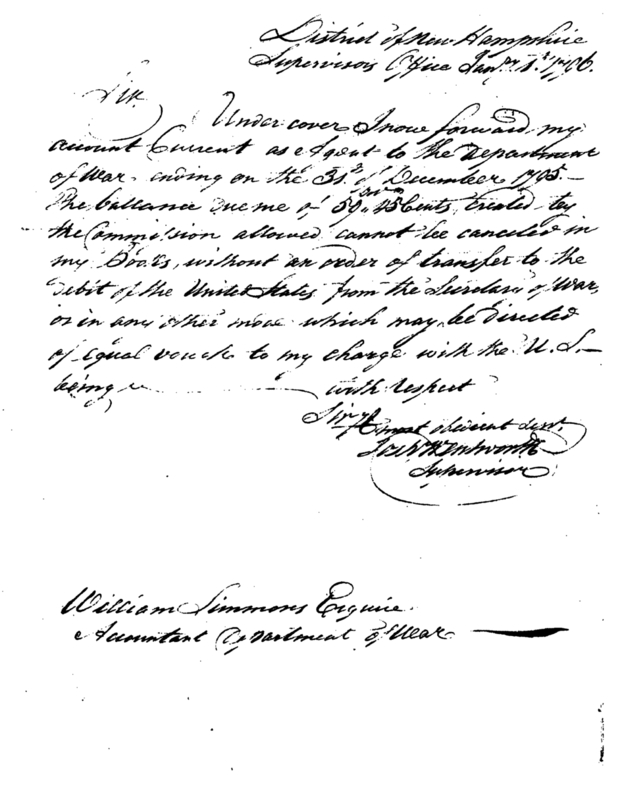 District of New Hampshire
Supervisors Office Jany 1796.
Sir.
Under cover I now forward my
account Current as Agent to the Department
of War ending on the 31st of December 1795 —
The ballance due me of 59 45 Cents, created by
the Commission allowed cannot be canceled in
my Books, without an order of transfer to the
debit of the United States from the Secretary of War,
or in any other mode which may be directed
of equal vouch to my charge with the U. S. —
being with respect
Sir
most obedient Servt.
Josh Wentworth
Supervisor
William Simmons Esquire.
Accountant Department of War